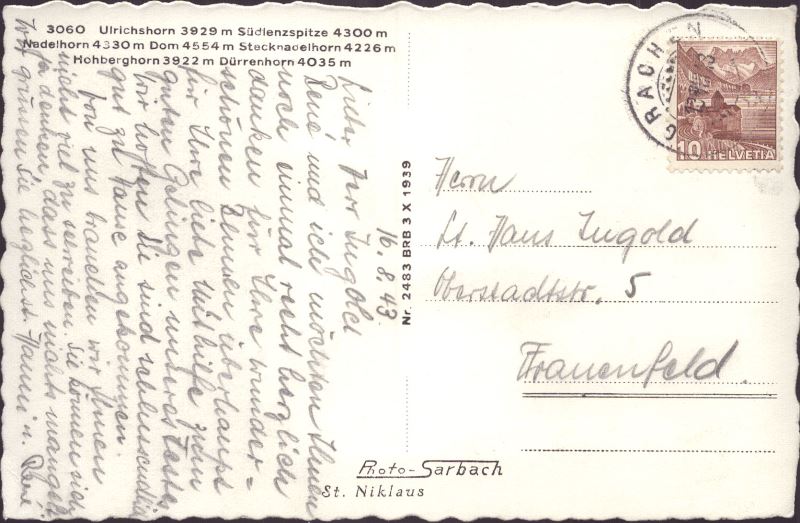 3060 Ulrichshorn 3929 m Südlenzspitze 4300 m
Nadelhorn 4330 m Dom 4554 m Stecknadelhorn 4226 m
Hohberghorn 3922 m Dürrenhorn 4035 m
16. 8. 43
Lieber Herr Ingold
René und ich möchten Ihnen
noch einmal recht herzlich
danken für Ihre wunder=
schönen überhaupt
für Ihre liebe Mithilfe zum
guten Gelingen unseres Festes
Wir hoffen Sie sind
gut zu Hause angekommen.
Von uns brauchen wir Ihnen
nicht viel zu schreiben. Sie können sich
ja denken, dass uns nichts mangelt.
Wir grüssen Sie herzlichst Hanni u. René
Nr. 2483 BRB 3 X 1939
GRÄCHEN
10 HELVETIA
Herrn
Lt. Hans Ingold
Oberstadtstr. 5
Frauenfeld.
Photo-Sarbach
St. Niklaus